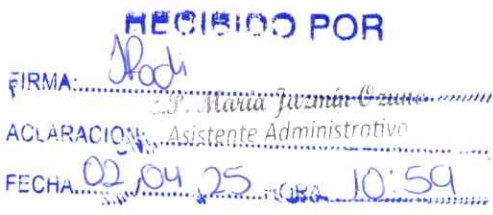 RECIBIDO POR
FIRMA:
C.P. María Juzmín Ozuna
ACLARACION: Asistente Administrativo
FECHA 02/04/25 HORA 10:59